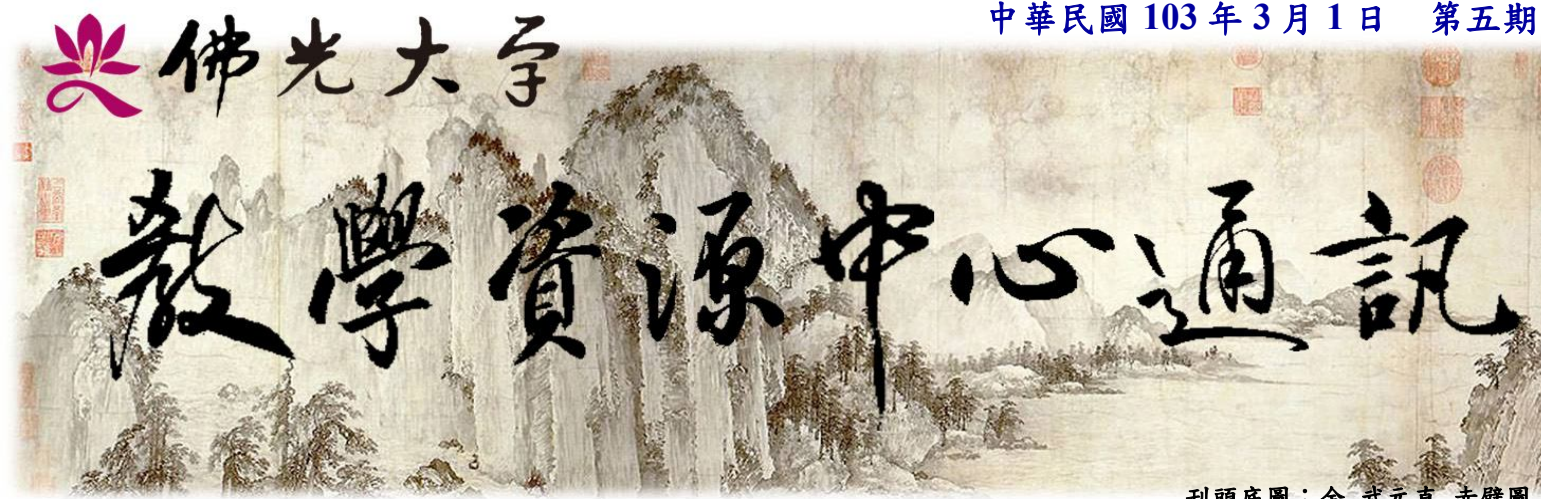 中華民國 103 年 3 月 1 日 第五期
佛光大学
教學資源中心通訊
刊頭底圖：金 武元直 赤壁圖